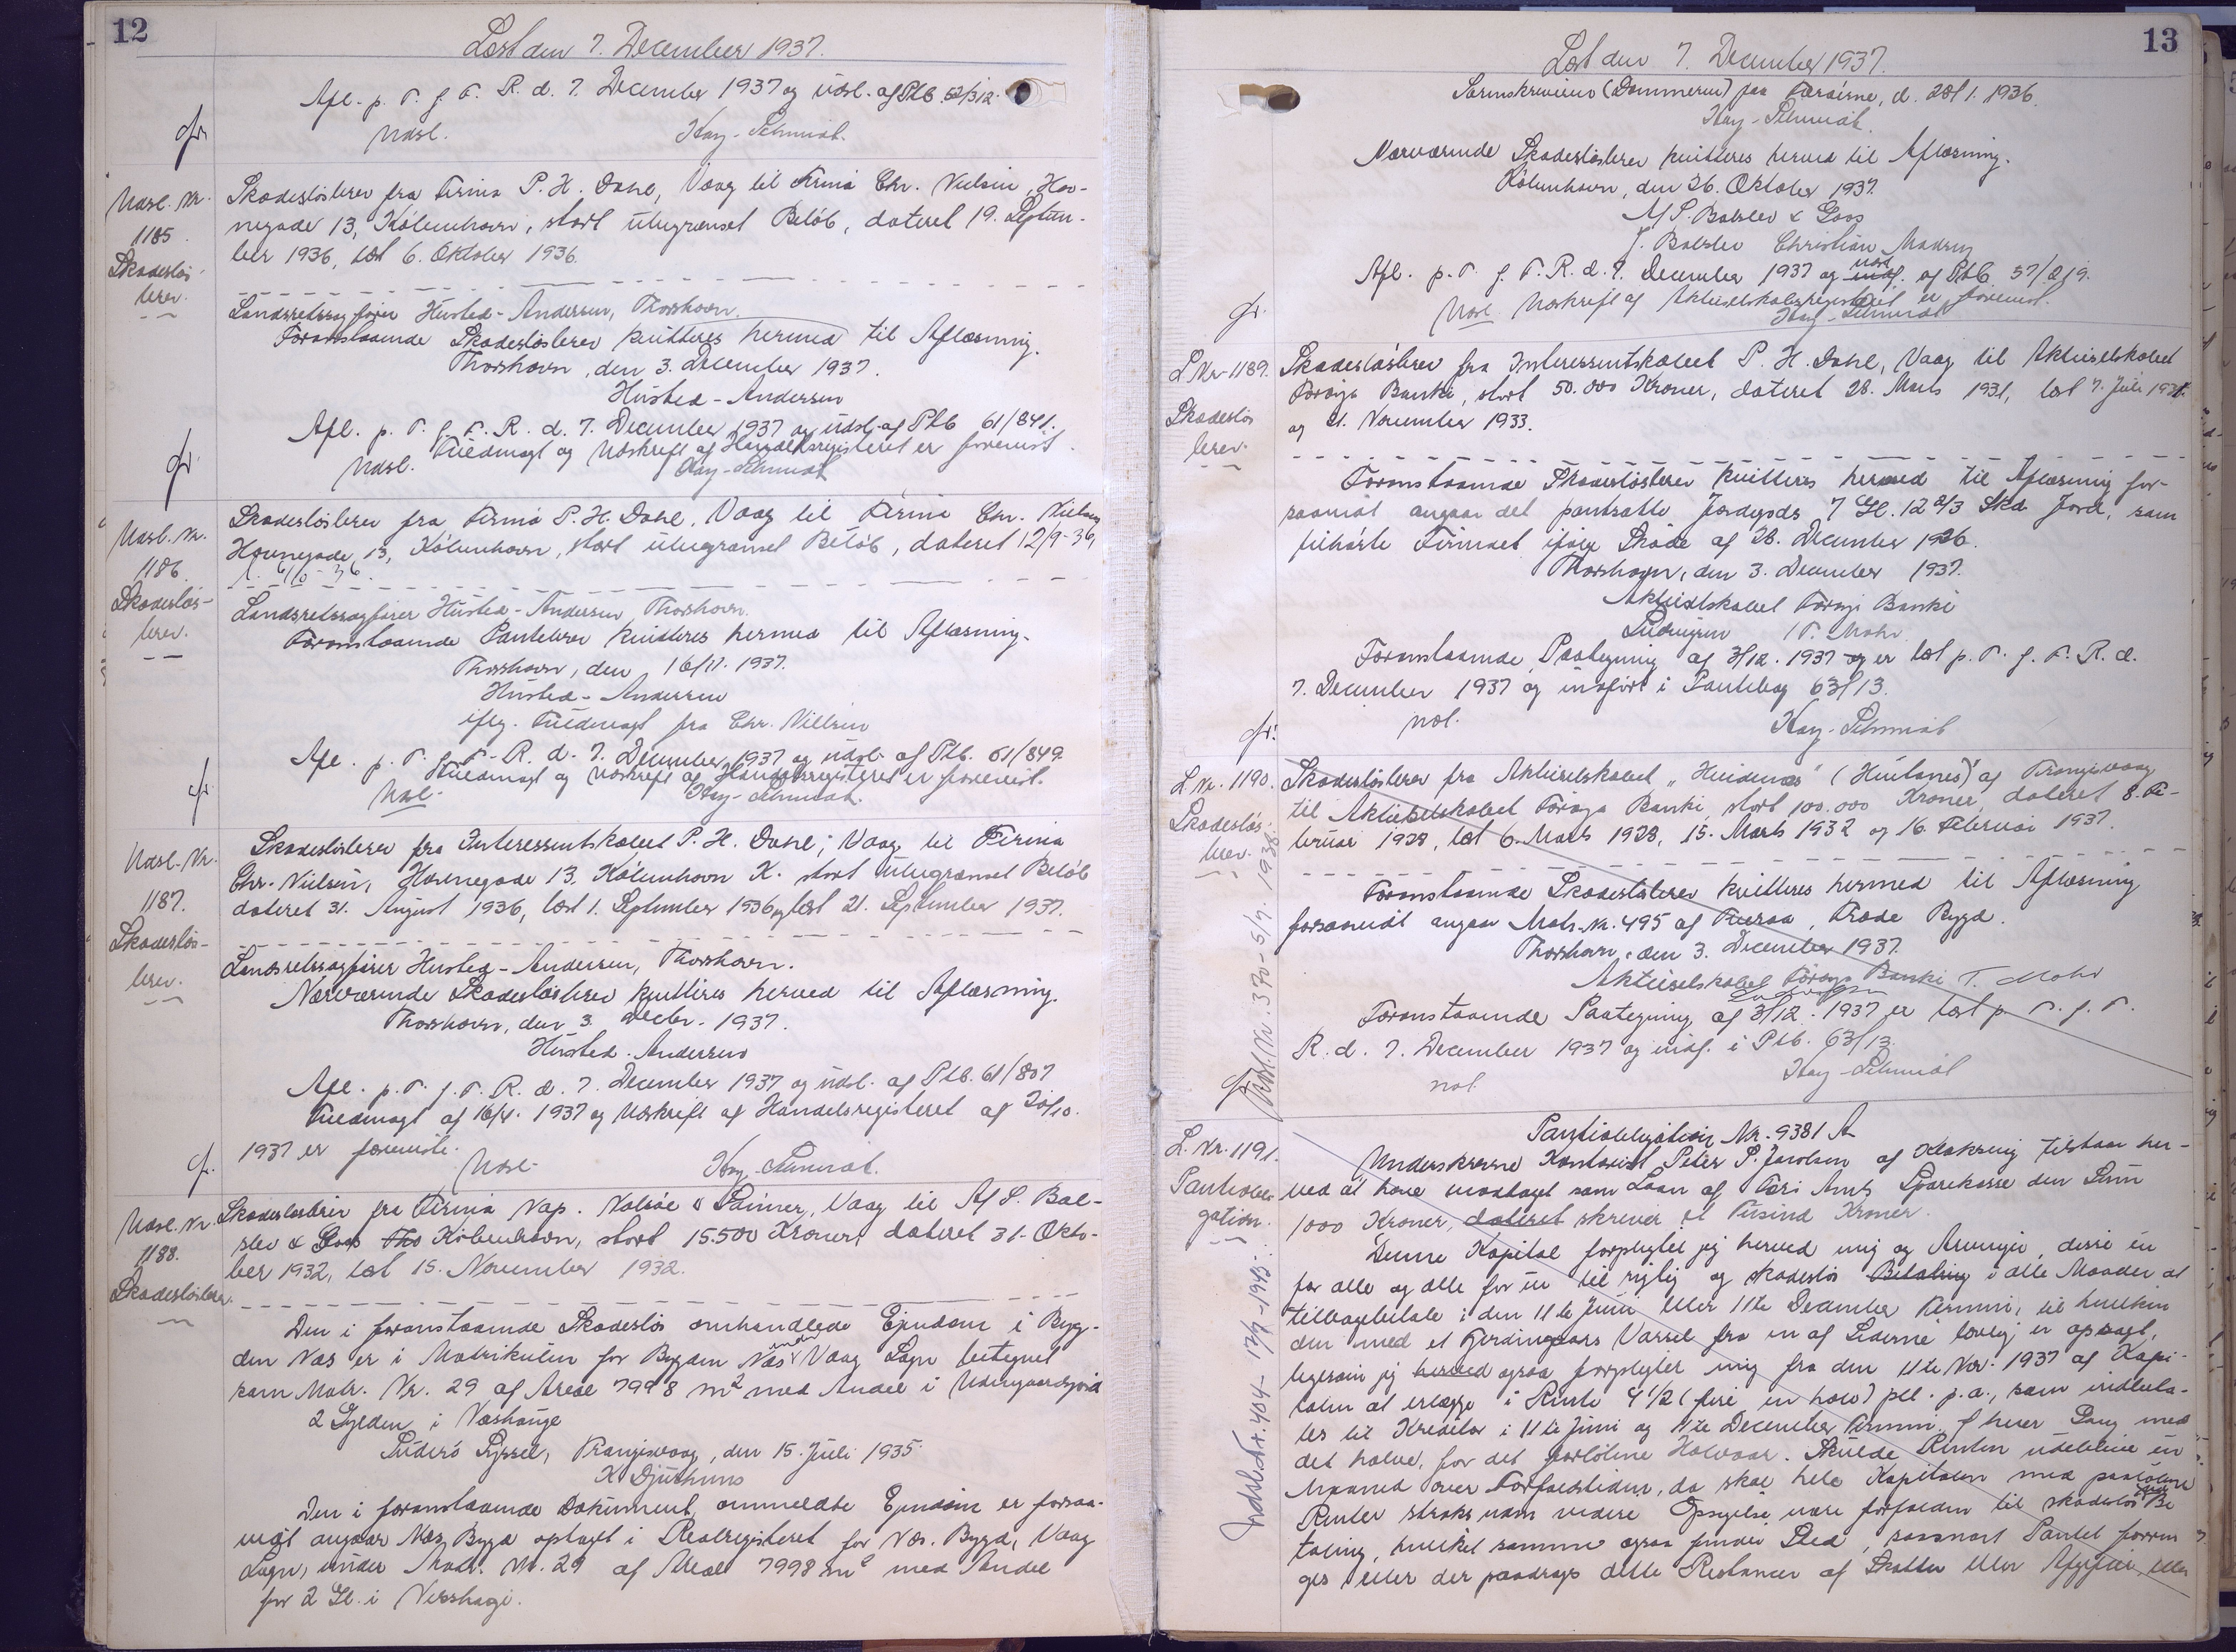 12
Læst den 7. December 1937.
Afl. p. T. f. F. R. d. 7. December 1937 og udsl. af Ptb. 62/312.
Udsl. Kay-Schmidt.
gr.
Udsl. Nr.
1185.
Skadesløs-
brev.
Skadesløsbrev fra Firma P. H. Dahl, Vaag til Firma Chr. Nielsen, Hav-
negade 13, København, stort ubegrænset Beløb, dateret 19. Septem-
ber 1936, læst 6. Oktober 1936.
Landsretssagfører Husted-Andersen, Thorshavn.
Foranstaaende Skadesløsbrev kvitteres hermed til Aflæsning.
Thorshavn, den 3. December 1937.
Husted-Andersen
Afl. p. T. f. F. R. d. 7. December 1937 og udsl. af Ptb 61/841.
Fuldmagt og Udskrift af Handelsregisteret er forevist.
Udsl. Kay-Schmidt
gr.
Udsl. Nr.
1186.
Skadesløs-
brev.
Skadesløsbrev fra Firma P. H. Dahl, Vaag til Firma Chr. Nielsen
Havnegade 13, København, stort ubegrænset Beløb, dateret 12/9-36,
l. 6/10-36.
Landsretssagfører Husted-Andersen Thorshavn.
Foranstaaende Pantebrev kvitteres hermed til Aflæsning.
Thorshavn, den 16/11. 1937.
Husted-Andersen
iflg. Fuldmagt fra Chr. Nielsen
Afl. p. T. f. F. R. d. 7. December 1937 og udsl. af Ptb. 61/849.
Fuldmagt og Udskrift af Handelsregisteret er forevist.
Udsl. Kay-Schmidt.
gr.
Udsl. Nr.
1187.
Skadesløs-
brev.
Skadesløsbrev fra Interessentskabet P. H. Dahl, Vaag til Firma
Chr. Nielsen, Havnegade 13, København K. stort ubegrænset Beløb
dateret 31. August 1936, læst 1. September 1936 og læst 21. September 1937.
Landsretssagfører Husted-Andersen, Thorshavn.
Nærværende Skadesløsbrev kvitteres herved til Aflæsning.
Thorshavn, den 3. Decbr. 1937.
Husted-Andersen
Afl. p. T. f. F. R. d. 7. December 1937 og udsl. af Ptb. 61/807
Fuldmagt af 16/4. 1937 og Udskrift af Handelsregisteret af 20/10.
1937 er foreviste.
Udsl. Kay-Schmidt.
gr.
Udsl. Nr.
1188.
Skadesløsbrev.
Skadesløsbrev fra Firma Nap. Nolsøe & Sønner, Vaag til M. S. Bal-
slev & Goos København, stort 15.500 Kroner, dateret 31. Okto-
ber 1932, læst 15. November 1932.
Den i foranstaaende Skadesløs omhandlede Ejendom i Byg-
den Næs er i Matrikulen for Bygden Næs under Vaag Sogn betegnet
som Matr. Nr. 29 af Areal 7998 m² med Andel i Udengaardsjord
2 Gylden i Næshauge
Suderø Syssel, Trangisvaag, den 15. Juli 1935.
K. Djurhuus
Den i foranstaaende Dokument ommeldte Ejendom er forsaa-
vidt angaar Næs Bygd optaget i Realregisteret for Næs. Bygd, Vaag
Sogn, under Matr. Nr. 29 af Areal 7998 m² med Andel
for 2 Gl. i
13
Læst den 7. December 1937.
Sorenskriveren (Dommeren) paa Færøerne, d. 1936.
Kay-Schmidt.
Nærværende Skadesløsbrev kvitteres herved til Aflæsning.
København, den 26. Oktober 1937.
M. S. Balslev & Goos
J. Balslev Christian
Afl. p. T. f. F. R. d. 7. December 1937 og udsl. af Ptb 57/219.
Udsl. Udskrift af Aktieselskabsregisteret er forevist.
Kay-Schmidt
gr.
L. Nr. 1189.
Skadesløs
brev.
Skadesløsbrev fra Interessentskabet P. H. Dahl, Vaag til Aktieselskabet
Føroya Banki, stort 50.000 Kroner, dateret 28. Marts 1931, læst 7. Juli 1931.
og 21. November 1933.
Foranstaaende Skadesløsbrev kvitteres hermed til Aflæsning for-
saavidt angaar det pantsatte Jordegods 7 Gl. 12 2/3 Skd. Jord, som
tilhørte Firmaet ifølge Skøde af 28. December 1926.
Thorshavn, den 3. December 1937.
Aktieselskabet Føroya Banki
T. Mohr
Foranstaaende Paategning af 3/12. 1937 og er læst p. T. f. F. R. d.
7. December 1937 og indført i Pantebog 63/13.
ndl. Kay-Schmidt
gr.
L. Nr. 1190.
Skadesløs-
brev.
Udsl. Nr. 370 - 5/7. 1938.
Skadesløsbrev fra Aktieselskabet "Hvidenæs" (Hvitanes) af Trangisvaag
til Aktieselskabet Føroya Banki, stort 100.000 Kroner, dateret 8. Fe-
bruar 1928, læst 6. Marts 1928, 15. Marts 1932 og 16. Februar 1937.
Foranstaaende Skadesløsbrev kvitteres hermed til Aflæsning
forsaavidt angaar Matr. Nr. 495 af Tveraa, Frode Bygd.
Thorshavn, den 3. December 1937.
Aktieselskabet Føroya Banki T. Mohr
Foranstaaende Paategning af 3/12. 1937 er læst p. T. f. F.
R. d. 7. December 1937 og indf. i Ptb. 63/13.
ndl. Kay-Schmidt
gr.
L. Nr. 1191.
Pantobli-
gation.
Udsl. Nr. 404 - 17/9-1943.
Pantobligation Nr. 9381 A
Underskrevne Kontorist Peter P. Jacobsen af Klaksvig tilstaar her-
ved at have modtaget som Laan af Færø Amts Sparekasse den Sum
1000 Kroner, dateret skriver et Tusind Kroner.
Denne Kapital forpligter jeg herved mig og Arvinger, desse en
for alle og alle for en til rigtig og skadesløs Betaling i alle Maader at
tilbagebetale i den 11te Juni eller 11te December Termin, til hvilken
den med et Fjerdingaars Varsel fra en af Siderne lovlig er opsagt,
ligesom jeg herved ogsaa forpligter mig fra den 11te Nov. 1937 af Kapi-
talen at erlægge i Rente 4 1/2 (fire en halv) pCt. p. a., som indbeta-
les til Kreditor i 11te Juni og 11te December Termin, hver Gang med
det halve, for det forløbne Halvaar. Skulde Renten udeblive en
Maaned over Forfaldstiden, da skal hele Kapitalen med paaløbne
Renter straks uden videre Opsigelse være forfalden til skadesløs Be
taling, hvilket samme ogsaa finder Sted, saasnart Pantet forrin
ges eller der paadrages dette Restancer af Skatter eller Afgifter, eller